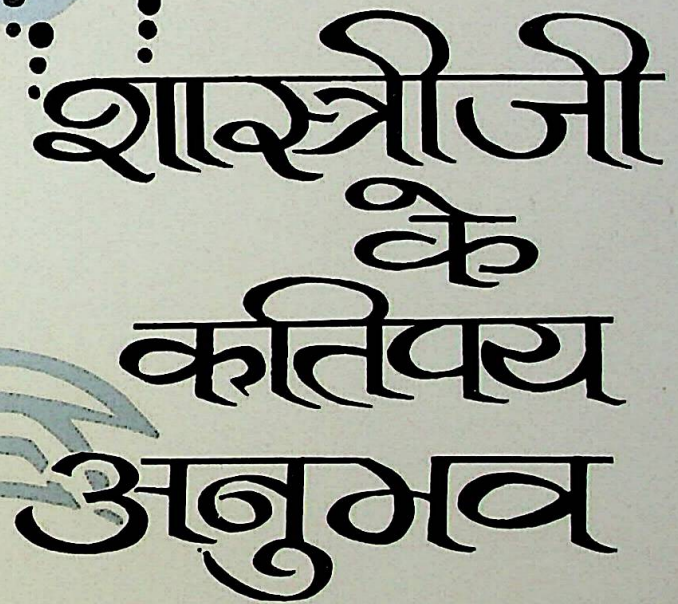 शास्त्रीजी
के
कतिपय
अनुभव